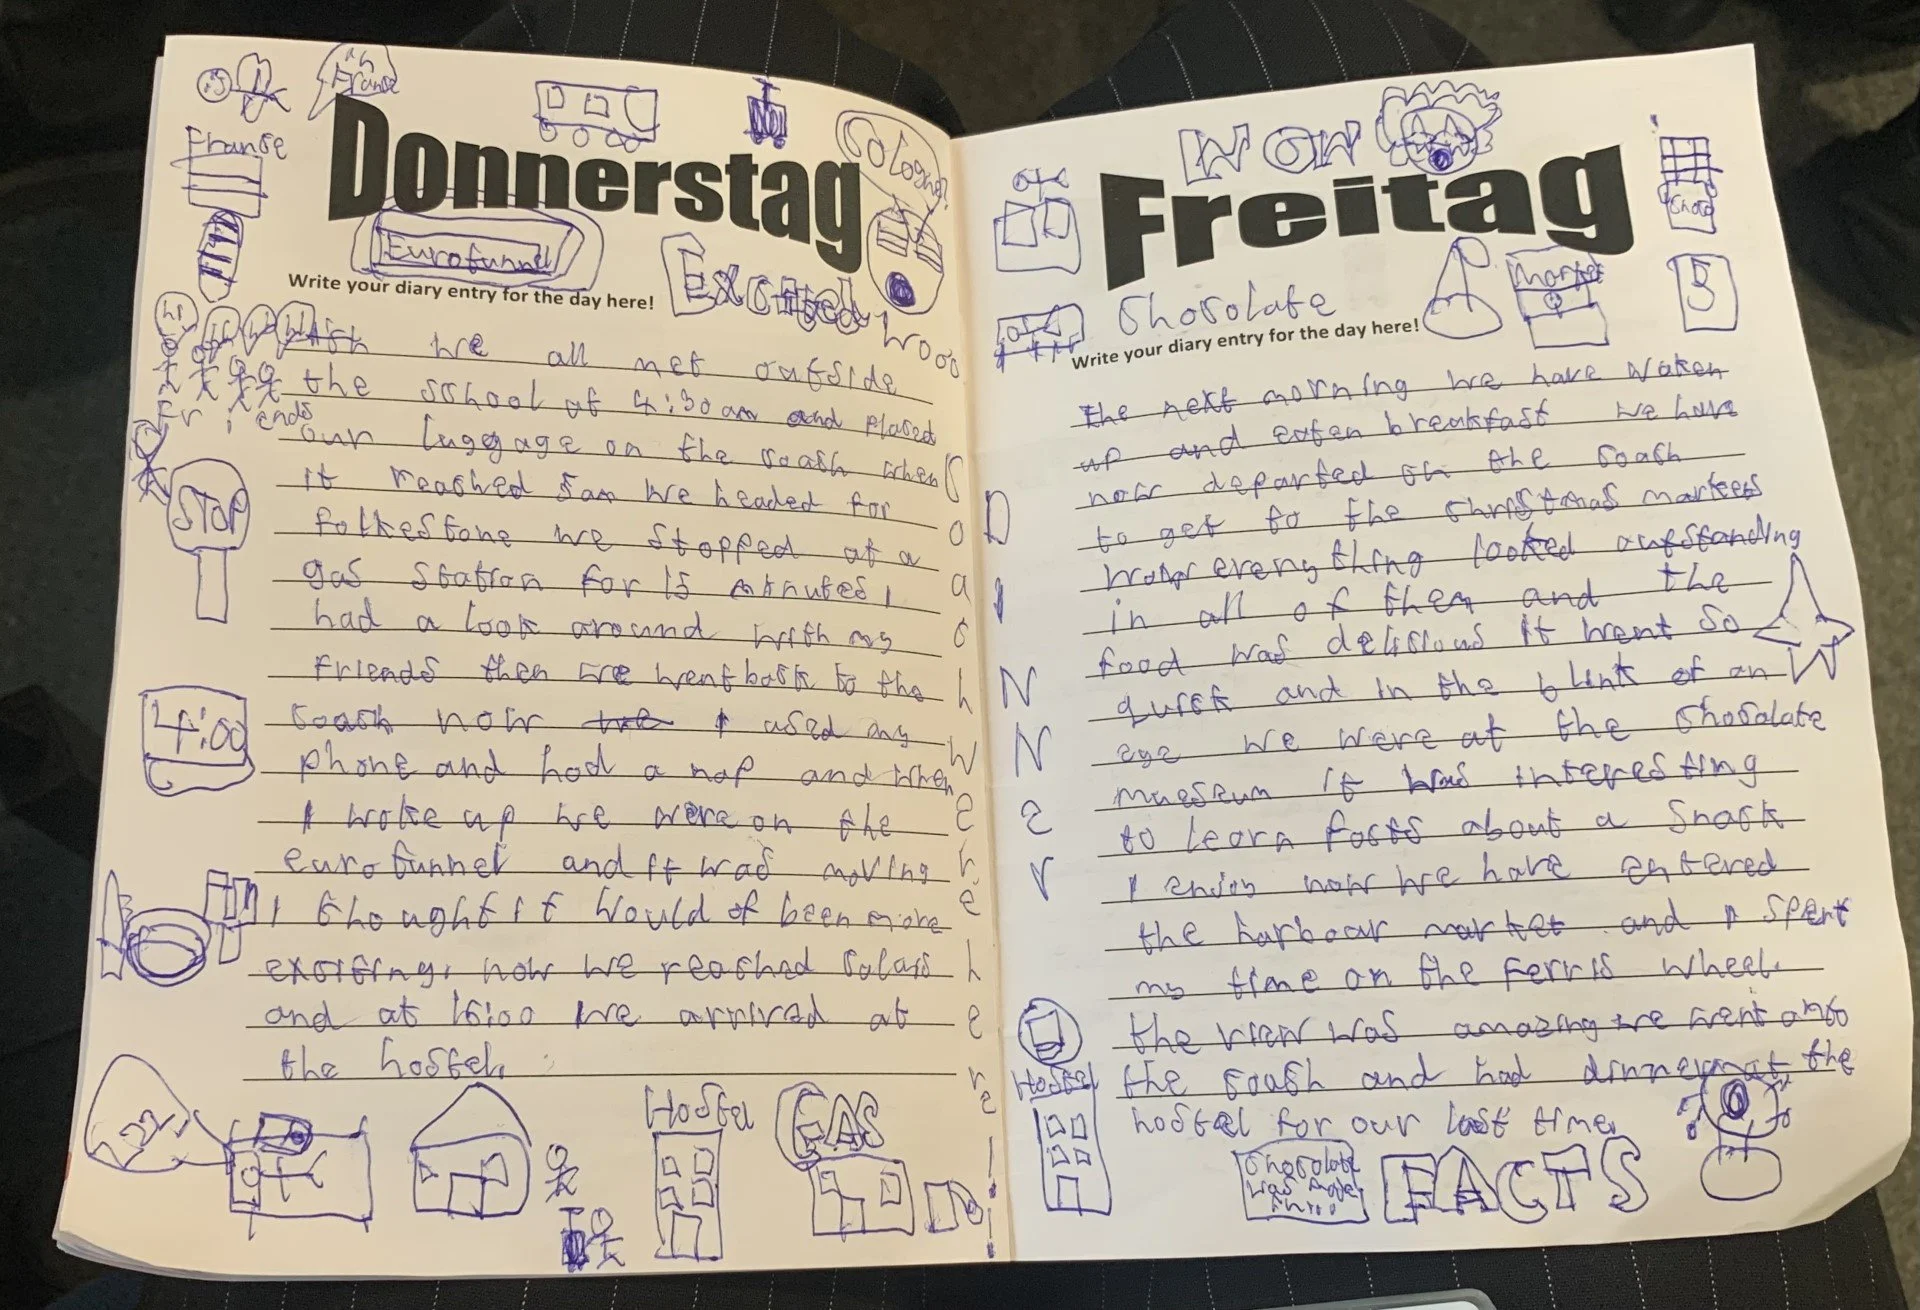 in France
Donnerstag
Cologne?
France
Eurotunnel
Write your diary entry for the day here!
Excited
Wooo
hi
hi
hi
hi
Friends
we all met outside
the school at 4:30am and placed
our luggage on the coach when
it reached 5am we headed for
folkestone we stopped at a
gas station for 15 minutes I
had a look around with my
friends then we went back to the
coach now the I used my
phone and had a nap and when
I woke up we were on the
eurotunnel and it was moving
I thought it would of been more
exciting. now we reached Calais
and at 16:00 we arrived at
the hostel.
STOP
4:00
Coach were here!!!
ZZZ
Hostel
GAS
WOW
Freitag
Choco
Chocolate
Market
5
Write your diary entry for the day here!
the next morning we have waken
up and eaten breakfast we have
now departed on the coach
to get to the christmas markets
wow everything looked outstanding
in all of them and the
food was delicious it went so
quick and in the blink of an
eye we were at the chocolate
museum it was interesting
to learn facts about a snack
I enjoy now we have entered
the harbour market and I spent
my time on the ferris wheel.
the view was amazing we went onto
the coach and had dinner at the
hostel for our last time.
DINNer
Hostel
Chocolate
was made
FACTS